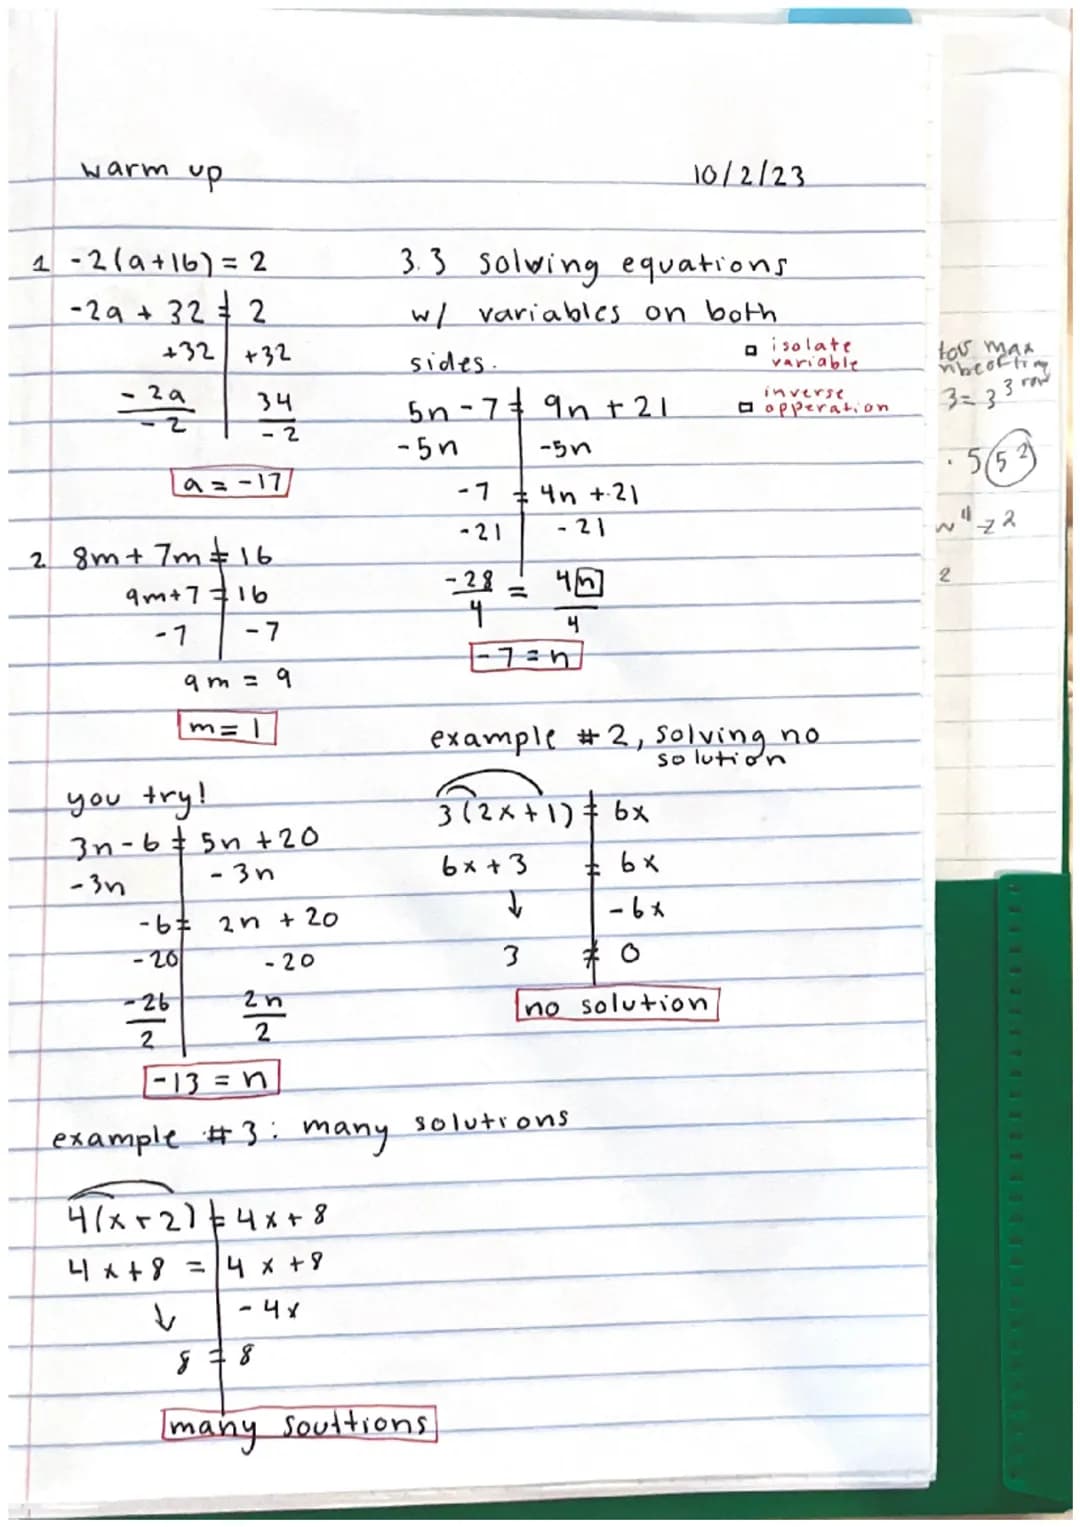 warm up
10/2/23
1 -2(a+16) = 2
-2a + 32 = 2
+32 +32
-2a 34
-2 -2
a = -17
2 8m + 7m = 16
9m+7 = 16
-7 -7
9m = 9
m = 1
you try!
3n-6 = 5n +20
-3n -3n
-6 = 2n + 20
-20 -20
-26 2n
2 2
-13 = n
3.3 solving equations
w/ variables on both
sides.
isolate
variable
inverse
opperation
5n-7 = 9n +21
-5n -5n
-7 = 4n +21
-21 -21
-28 = 4n
4 4
-7 = n
example #2, solving no
solution
3(2x+1) = 6x
6x + 3 = 6x
↓ -6x
3 ≠ 0
no solution
example #3: many solutions
4(x+2) = 4x+8
4x+8 = 4x+8
↓ -4x
8 = 8
many souttions
max
3 = 3 3 row
. 5(5²)
2